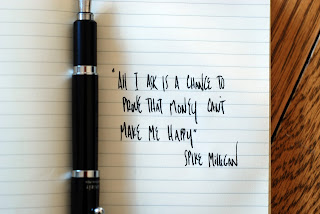 "All I ask is a chance to
prove that money can't
make me happy"
Spike Milligan